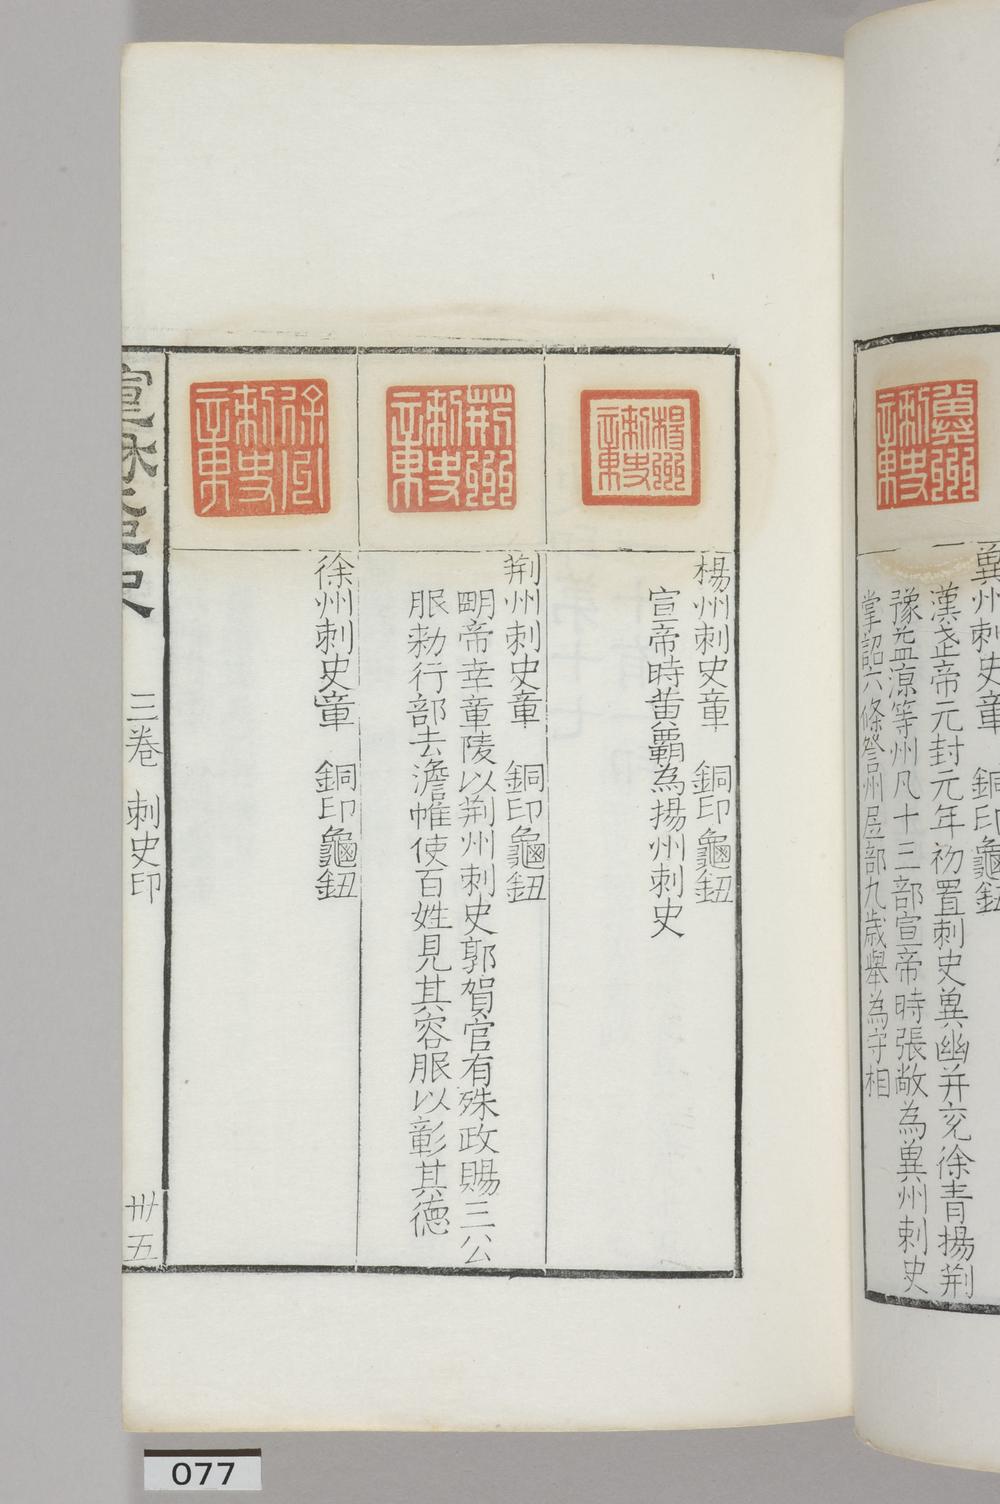 冀州刺史章　銅印龜鈕
漢武帝元封元年初置刺史冀幽并兗徐青揚荆
豫益涼等州凡十三部宣帝時張敞為冀州刺史
掌詔六條詧州居部九歲舉為守相
楊州刺史章　銅印龜鈕
宣帝時黄霸為揚州刺史
荆州刺史章　銅印龜鈕
明帝幸章陵以荆州刺史郭賀官有殊政賜三公
服勑行部去襜帷使百姓見其容服以彰其德
徐州刺史章　銅印龜鈕
三卷　刺史印
卅五
077